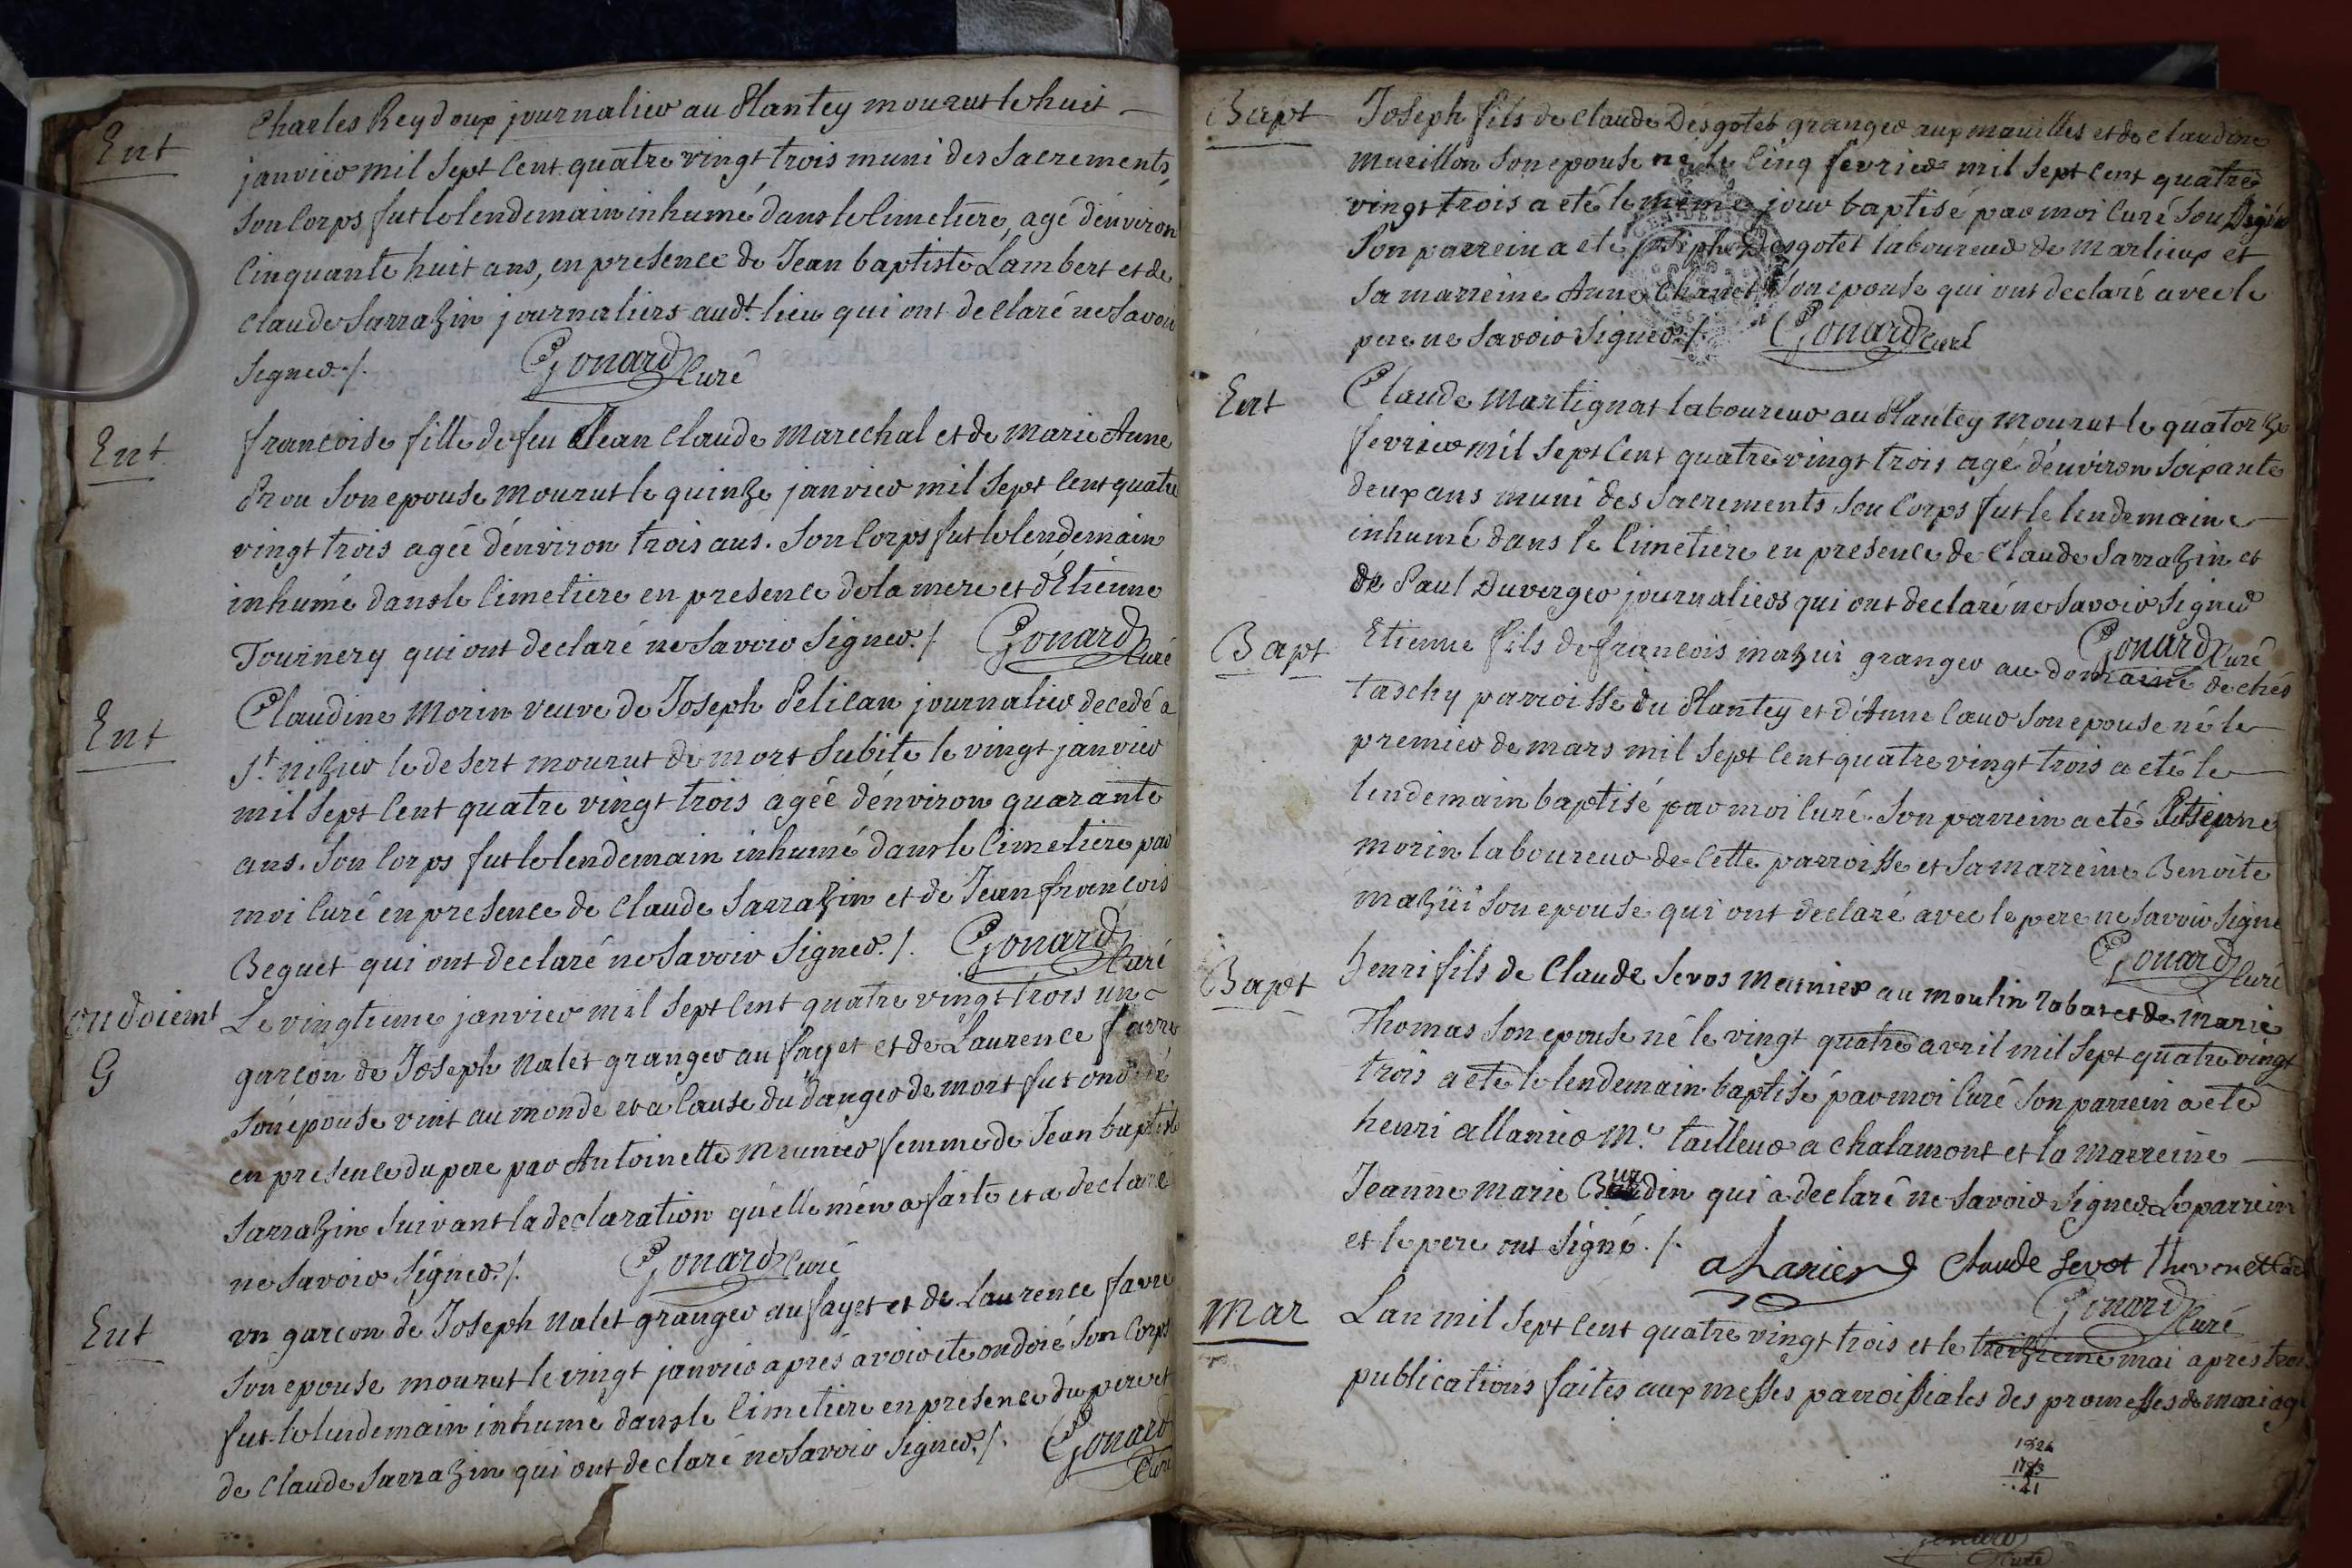 Ent
Charles Reydoux journalier au Plantey mourut le huit
janvier mil sept cent quatre vingt trois muni des sacrements,
son corps fut le lendemain inhumé dans le cimetiere, agé d'environ
cinquante huit ans, en presence de Jean baptiste Lambert et de
claude Sarrazin journaliers audt. lieu qui ont declaré ne savoir
signer./.
Gonard curé
Ent
francoise fille de feu Jean claude marechal et de marie Anne
son epouse mourut le quinze janvier mil sept cent quatre
vingt trois agée d'environ trois ans. son corps fut le lendemain
inhumé dans le cimetiere en presence de la mere et d'Etienne
Tournery qui ont declaré ne savoir signer./. Gonard curé
Ent
Claudine morin veuve de Joseph Pelican journalier decedé a
st. nizier le desert mourut de mort subite le vingt janvier
mil sept cent quatre vingt trois agée d'environ quarante
ans. son corps fut le lendemain inhumé dans le cimetiere par
moi curé en presence de claude Sarrazin et de Jean francois
Beguet qui ont declaré ne savoir signer./. Gonard curé
ondoiemt
G
Le vingtieme janvier mil sept cent quatre vingt trois un
garcon de Joseph nalet granger au fayet et de Laurence favre
son epouse vint au monde et a cause du danger de mort fut ondoié
en presence du pere par Antoinette meunier femme de Jean baptiste
Sarrazin suivant la declaration qu'elle m'en a faite et a declaré
ne savoir signer./. Gonard curé
Ent
un garcon de Joseph nalet granger au fayet et de Laurence favre
son epouse mourut le vingt janvier apres avoir eté ondoié son corps
fut le lendemain inhumé dans le cimetiere en presence du pere et
de claude Sarrazin qui ont declaré ne savoir signer./. Gonard
Curé
Bapt
Joseph fils de claude Desgotet granger aux mauilles et de claudine
mucillon son epouse né le cinq fevrier mil sept cent quatre
vingt trois a eté le meme jour baptisé par moi curé soussigné
son parrein a eté joseph Desgotet laboureur de marlieux et
sa marreine Anne Chanet son epouse qui ont declaré avec le
pere ne savoir signer./. Gonard curé
Ent
Claude martignat laboureur au Plantey mourut le quatorze
fevrier mil sept cent quatre vingt trois agé d'environ soixante
deux ans muni des sacrements son corps fut le lendemain
inhumé dans le cimetiere en presence de claude Sarrazin et
de Paul Duverger journaliers qui ont declaré ne savoir signer
Gonard curé
Bapt
Etienne fils de francois mazui granger au domaine de chés
taschy parroisse du Plantey et d'Anne son epouse né le
premier de mars mil sept cent quatre vingt trois a eté le
lendemain baptisé par moi curé. son parrein a eté Etienne
morin laboureur de cette parroisse et sa marreine Benoite
mazüi son epouse qui ont declaré avec le pere ne savoir signe
Gonard curé
Bapt
henri fils de claude Sevos meunier au moulin rabat et de marie
Thomas son epouse né le vingt quatre avril mil sept quatre vingt
trois a eté le lendemain baptisé par moi curé son parrein a eté
henri allanier me. tailleur a chalamont et la marreine
Jeanne marie Burdin qui a declaré ne savoir signer. Le parrein
et le pere ont signé./.
Claude sevot
Gonard curé
Mar
Lan mil sept cent quatre vingt trois et le treizieme mai apres trois
publications faites aux messes parroissiales des promesses de mariage
1824
1783
41